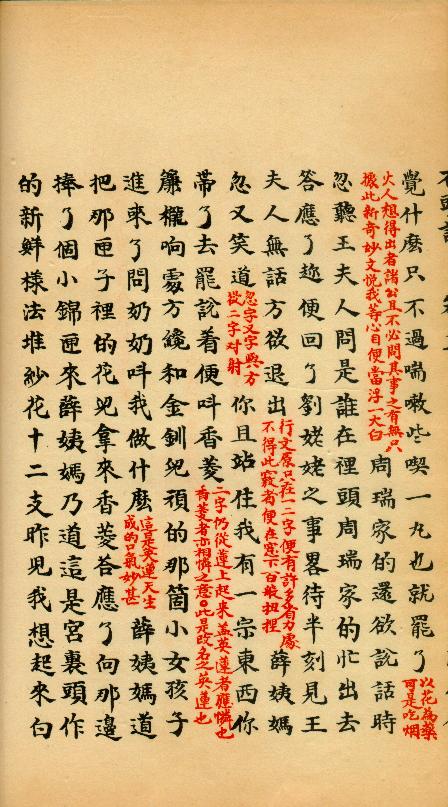 覺什麽只不過喘嗽些喫一丸也就罷了以花為藥可是吃烟
火人想得出者諸公且不必問其事之有無只據此新奇妙文悅我等心目便當浮一大白周瑞家的還欲說話時
忽聽王夫人問是誰在裡頭周瑞家的忙出去
答應了趂便回了劉姥姥之事畧待半刻見王
夫人無話方欲退出行文原只在一二字便有許多省力處不得此竅者便在窓下百般扭捏薛姨媽
忽又笑道忽字又字與方欲二字对射你且站住我有一宗東西你
帶了去罷說着便呌香菱二字仍從蓮上起来盖英蓮者應憐也香菱者亦相憐之意。此是改名之英蓮也
簾櫳响處方纔和金釧兒頑的那箇小女孩子
進來了問奶奶呌我做什麽這是英蓮天生成的口氣妙甚薛姨媽道
把那匣子裡的花兒拿來香菱答應了向那邊
捧了個小錦匣來薛姨媽乃道這是宮裏頭作
的新鮮樣法堆紗花十二支昨兒我想起來白